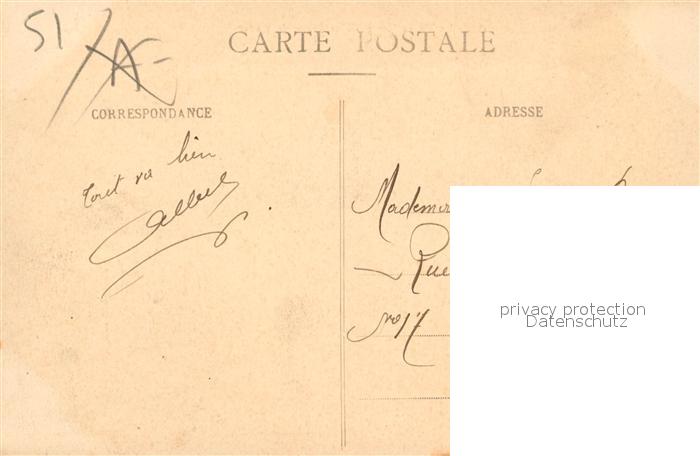 51 A-
CARTE POSTALE
CORRESPONDANCE
ADRESSE
Tout va bien
Albert
Mademoi
Rue
No 17
privacy protection
Datenschutz